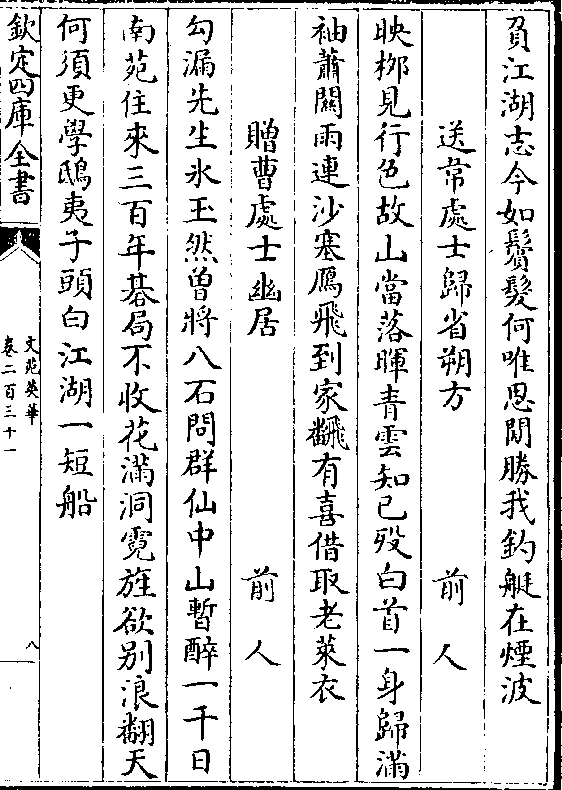 負江湖志今如鬢髮何唯思閒勝我釣艇在煙波
送常處士歸省朔方　前人
映栁見行色故山當落暉青雲知已歿白首一身歸滿
袖蕭關雨連沙塞鴈飛到家飜有喜借取老萊衣
贈曹處士幽居　前人
勾漏先生氷玉然曽將八石問群仙中山暫醉一千日
南苑住來三百年碁局不收花滿洞霓旌欲别浪翻天
何須更學鴟夷子頭白江湖一短船
欽定四庫全書
文苑英華
卷二百三十一
八